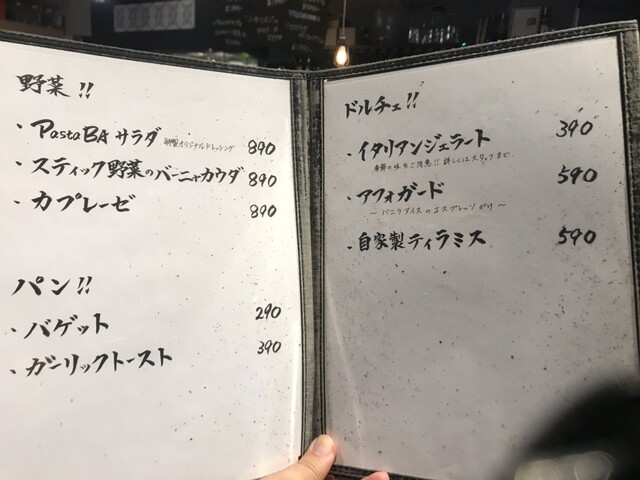 野菜!!
・PastaBAサラダ 特製オリジナルドレッシング 890
・スティック野菜のバーニャカウダ 890
・カプレーゼ 890
パン!!
・バゲット 290
・ガーリックトースト 390
ドルチェ!!
・イタリアンジェラート 390
季節の味をご用意!! 詳しくはスタッフまで
・アフォガード 590
〜バニラアイスのエスプレッソがけ〜
・自家製ティラミス 590